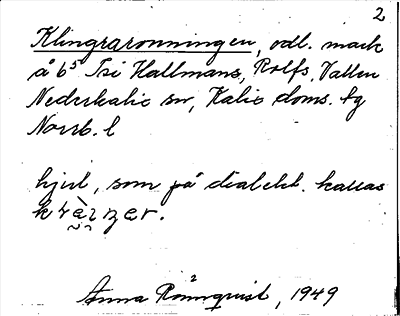 2
Klingraronningen, odl. mark
å 6⁵ Isi Hallmans, Rolfs, Vallen
Nederkalix sn, Kalix doms. tg
Norrb. l
hjul, som på dialekt. kallas
Anna Rönnqvist, 1949